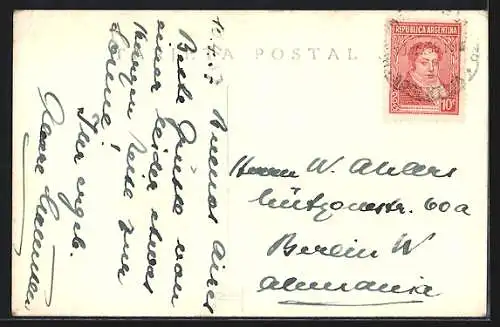 TARJETA POSTAL
REPUBLICA ARGENTINA
10c
Buenos Aires
Beste Grüsse von
einer leider etwas
kurzen Reise zur
Sonne!
Ihr ergeb.
Herrn W. Ahlers
Lützowstr. 60a
Berlin W
Alemania